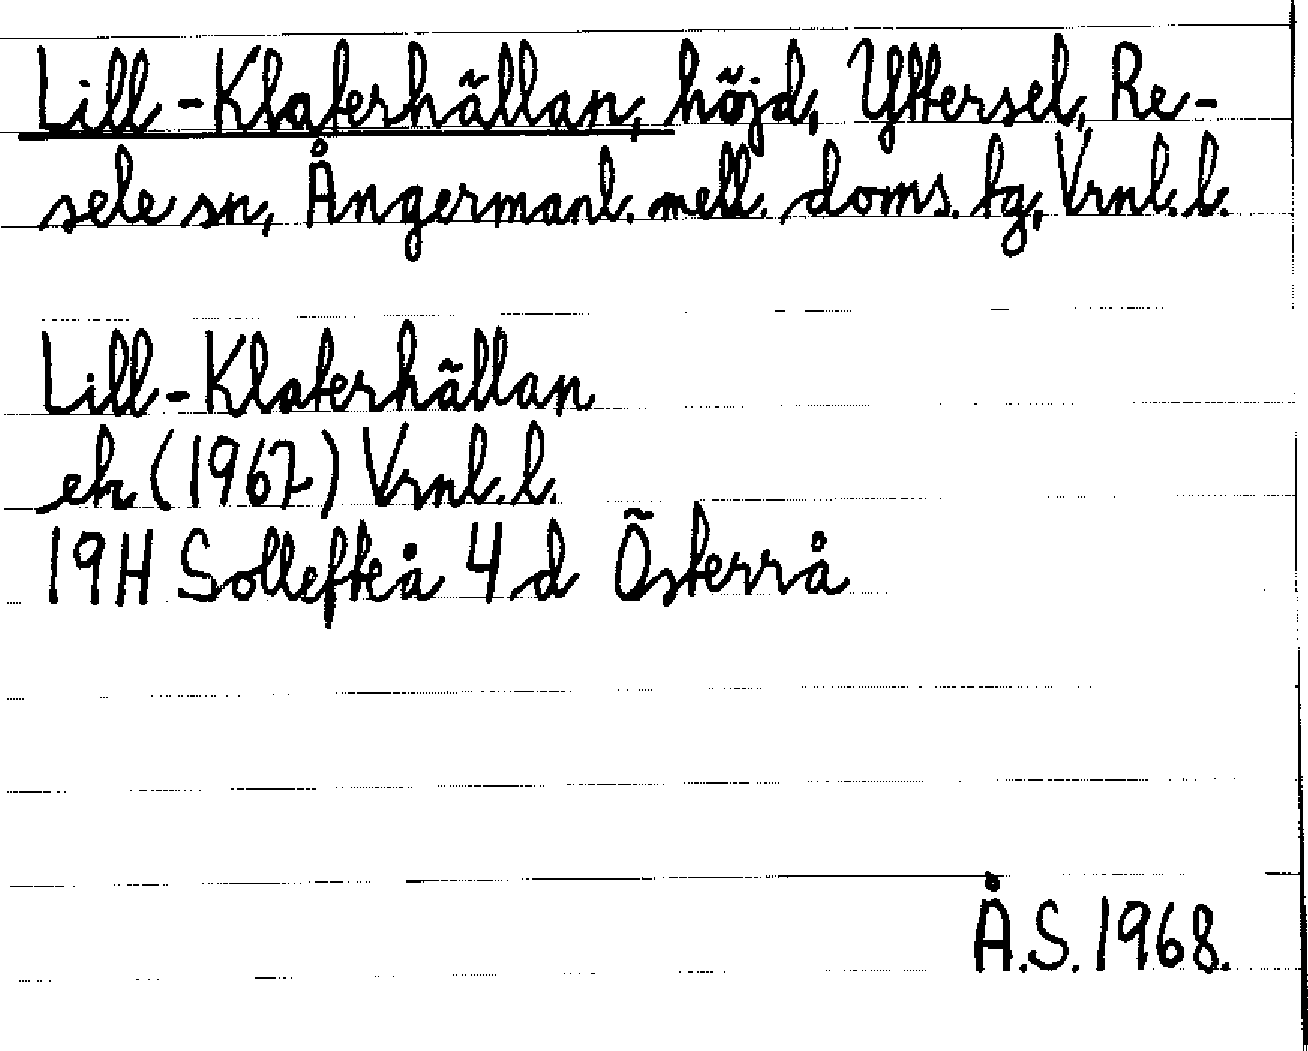 Lill-Klaterhällan, höjd, Yttersel, Re-
sele sn, Ångermanl. mell. doms. tg, Vrnl. l.
Lill-Klaterhällan
ek (1967) Vrnl. l.
19H Sollefteå 4 d Österrå
Å.S. 1968.